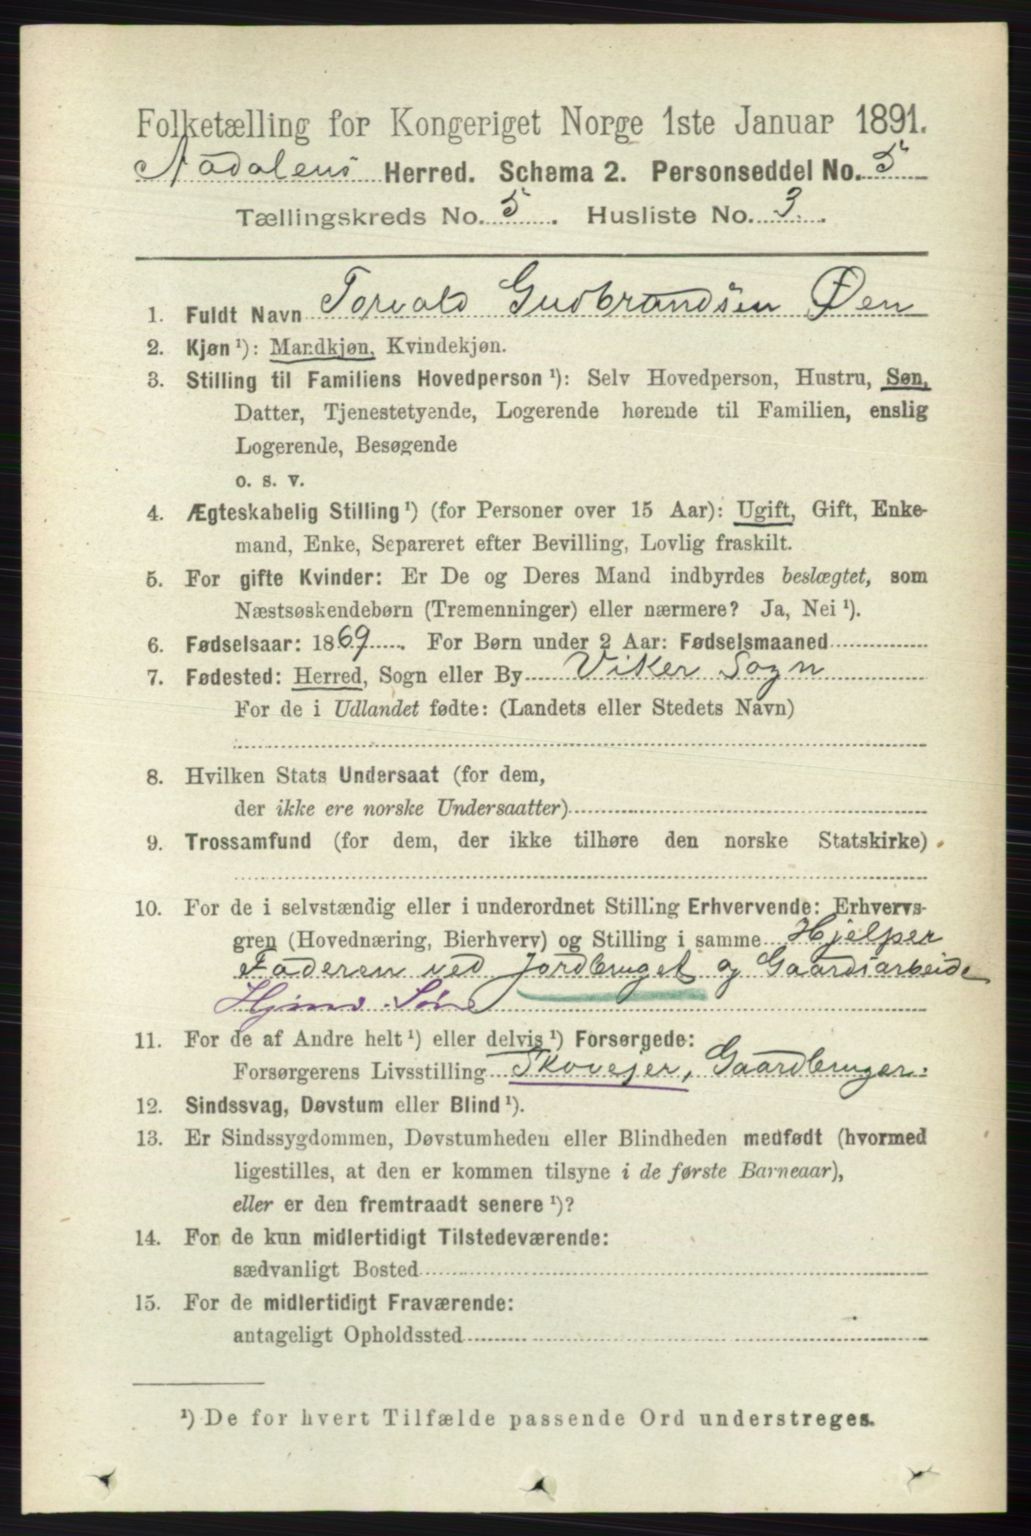 Folketælling for Kongeriget Norge 1ste Januar 1891.
Aadalens Herred. Schema 2. Personseddel No. 5
Tællingskreds No. 5. Husliste No. 3.
1. Fuldt Navn Torvald Gudbrandsen Øen
2. Kjøn ¹): Mandkjøn, Kvindekjøn.
3. Stilling til Familiens Hovedperson ¹): Selv Hovedperson, Hustru, Søn,
Datter, Tjenestetyende, Logerende hørende til Familien, enslig
Logerende, Besøgende
o. s. v.
4. Ægteskabelig Stilling ¹) (for Personer over 15 Aar): Ugift, Gift, Enke-
mand, Enke, Separeret efter Bevilling, Lovlig fraskilt.
5. For gifte Kvinder: Er De og Deres Mand indbyrdes beslægtet, som
Næstsøskendebørn (Tremenninger) eller nærmere? Ja, Nei ¹).
6. Fødselsaar: 1869. For Børn under 2 Aar: Fødselsmaaned
7. Fødested: Herred, Sogn eller By Viker Sogn
For de i Udlandet fødte: (Landets eller Stedets Navn)
8. Hvilken Stats Undersaat (for dem,
der ikke ere norske Undersaatter)
9. Trossamfund (for dem, der ikke tilhøre den norske Statskirke)
10. For de i selvstændig eller i underordnet Stilling Erhvervende: Erhvervs-
gren (Hovednæring, Bierhverv) og Stilling i samme Hjelper
Faderen ved Jordbruget og Gaardsarbeide
11. For de af Andre helt ¹) eller delvis ¹) Forsørgede:
Forsørgerens Livsstilling Skovejer, Gaardbruger.
12. Sindssvag, Døvstum eller Blind ¹).
13. Er Sindssygdommen, Døvstumheden eller Blindheden medfødt (hvormed
ligestilles, at den er kommen tilsyne i de første Barneaar),
eller er den fremtraadt senere ¹)?
14. For de kun midlertidigt Tilstedeværende:
sædvanligt Bosted
15. For de midlertidigt Fraværende:
antageligt Opholdssted
¹) De for hvert Tilfælde passende Ord understreges.